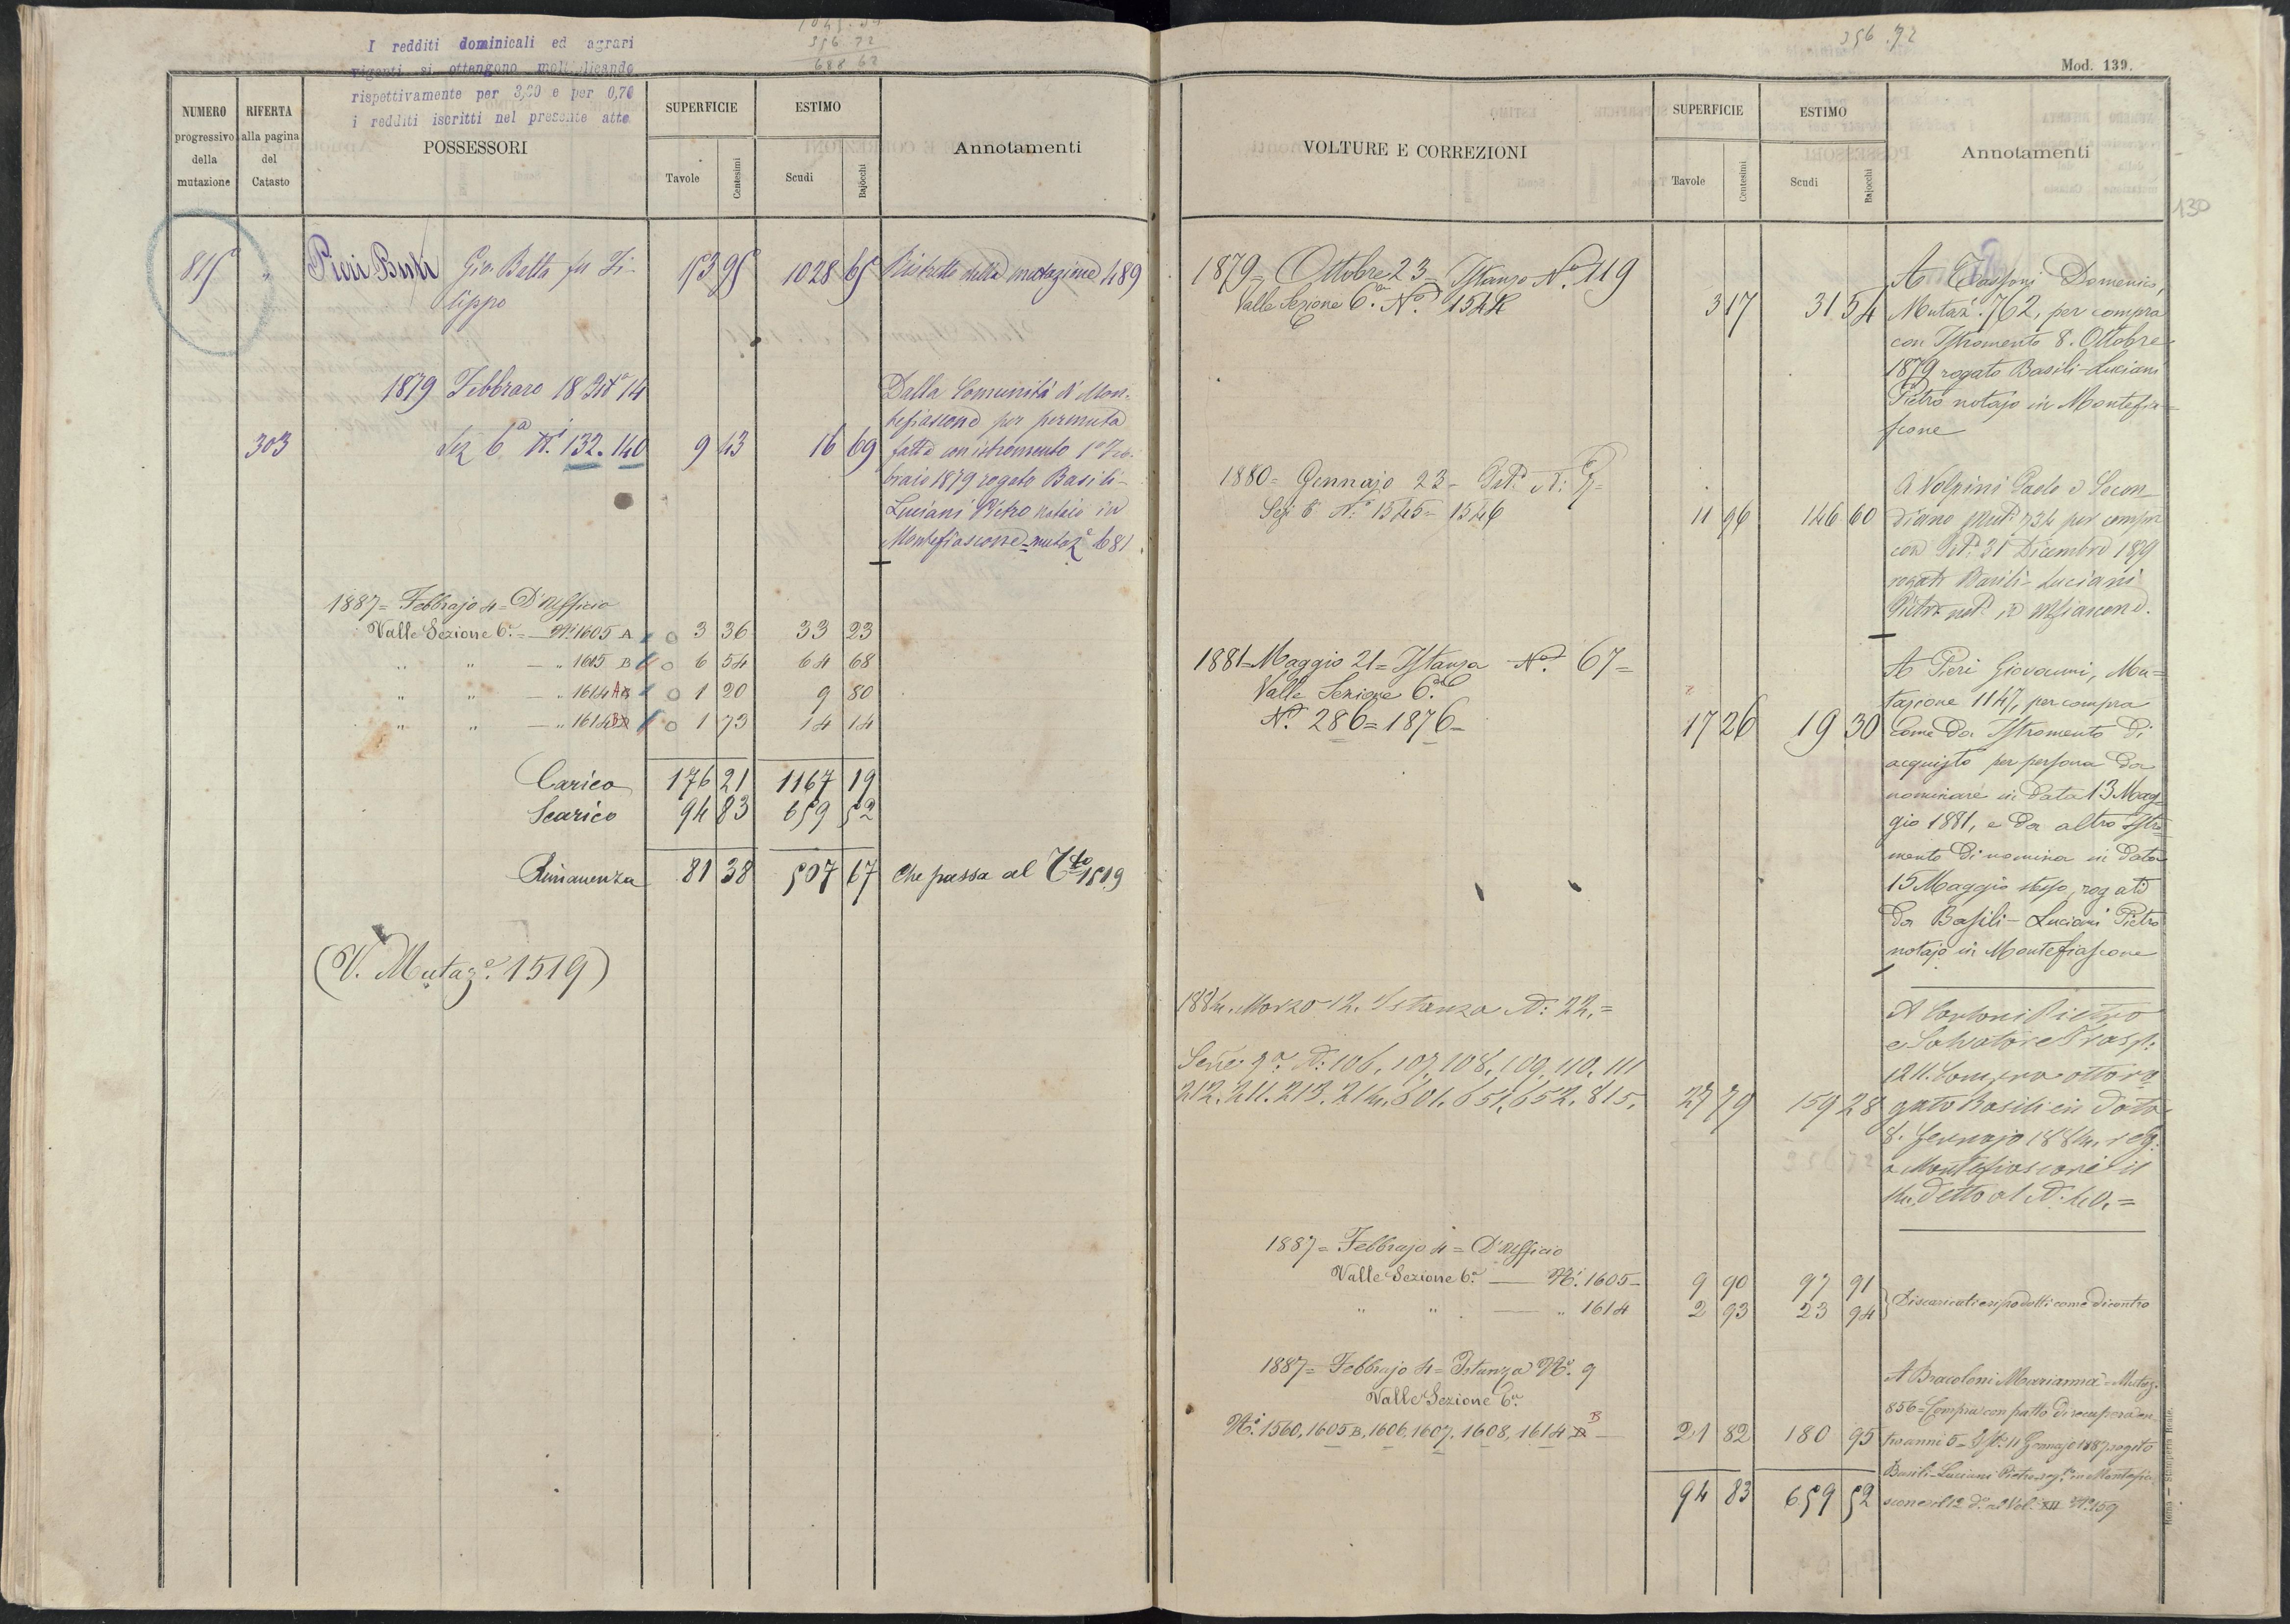 1045.34
356 72
688 62
I redditi dominicali ed agrari
vigenti si ottengono moltiplicando
rispettivamente per 3,20 e per 0,70
i redditi iscritti nel presente atto
NUMERO
progressivo
della
mutazione
RIFERTA
alla pagina
del
Catasto
POSSESSORI
SUPERFICIE
Tavole
Centesimi
ESTIMO
Scudi
Bajocchi
Annotamenti
815 " Pieri Buti Gio. Batta fu Fi- 153 95 1028 65 Ristretto della mutazione 489
lippo
1879 Febbraro 18 14
Dalla Comunità di Mon-
tefiascone per permuta
303 Sez 6a Ni. 132. 140 9 43 16 69 fatta con istromento 1o Feb-
braio 1879 rogato Basili-
Luciani Pietro notaio in
Montefiascone - mutaze 681
1887 = Febbrajo 4 = D'Ufficio
Valle Sezione 6a = Ni 1605 A 0 3 36 33 23
" " — " 1605 B 0 6 54 64 68
" " — " 1614 A 0 1 20 9 80
" " — " 1614 B 0 1 73 14 14
Carico 176 21 1167 19
Scarico 94 83 659 52
Rimanenza 81 38 507 67 Che passa al 1519
(V. Mutaze. 1519)
356.72
Mod. 139.
130
VOLTURE E CORREZIONI
SUPERFICIE
Tavole
Centesimi
ESTIMO
Scudi
Bajocchi
Annotamenti
1879 = Ottobre 23 - Istanza No. 119
Valle Sezione 6a. No. 1544 3 17 31 54
A Tassoni Domenico,
Mutaze. 762, per compra
con Istromento 8. Ottobre
1879 rogato Basili-Luciani
Pietro notajo in Montefia=
scone
1880 = Gennajo 23 -
Sez 6 Ni 1545 = 1546 11 96 146 60
A Volpini Paolo e Secon-
diano Mut. 734 per compra
con 31 Dicembre 1879
rogato Basili-Luciani
Pietro not. in Mfiascone.
1881 = Maggio 21 = Istanza No. 67 =
Valle Sezione 6a
Ni. 286 = 1876 = 17 26 19 30
A Pieri Giovanni, Mu=
tazione 1147, per compra
come da Istromento di
acquisto per persona da
nominare in data 13 Mag=
gio 1881, e da altro Istro=
mento di nomina in data
15 Maggio stesso, rogati
da Basili-Luciani Pietro
notajo in Montefiascone
1884. Marzo 12. Istanza N: 22. =
N: 106. 107. 108. 109. 110. 111
212. 211. 213. 214. 601. 651. 652. 815. 27 79 159 28
A Cortoni Pietro
e Salvatore Trasp:
1211. Compra atto ro
gato Basili in data
8. Gennajo 1884. reg.
a Montefiascone il
14. detto al N. 40. =
1887 = Febbrajo 4 = D'Ufficio
Valle Sezione 6a. — Ni. 1605 - 9 90 97 91
" " — " 1614 2 93 23 94
Discaricati e riprodotti come dicontro
1887 = Febbrajo 4 = Istanza No. 9
Valle Sezione 6a
Ni. 1560, 1605 B, 1606, 1607, 1608, 1614 B — 21 82 180 95
A Bracoloni Marianna = Mutaz.
856 = Compra con patto di recupera en
tro anni 5 - Ist. 11 Gennajo 1887 rogito
Basili-Luciani Pietro reg.to in Montefia
scone il 12 do. al Vol. XII No. 159
94 83 659 52
Roma — Stamperia Reale.